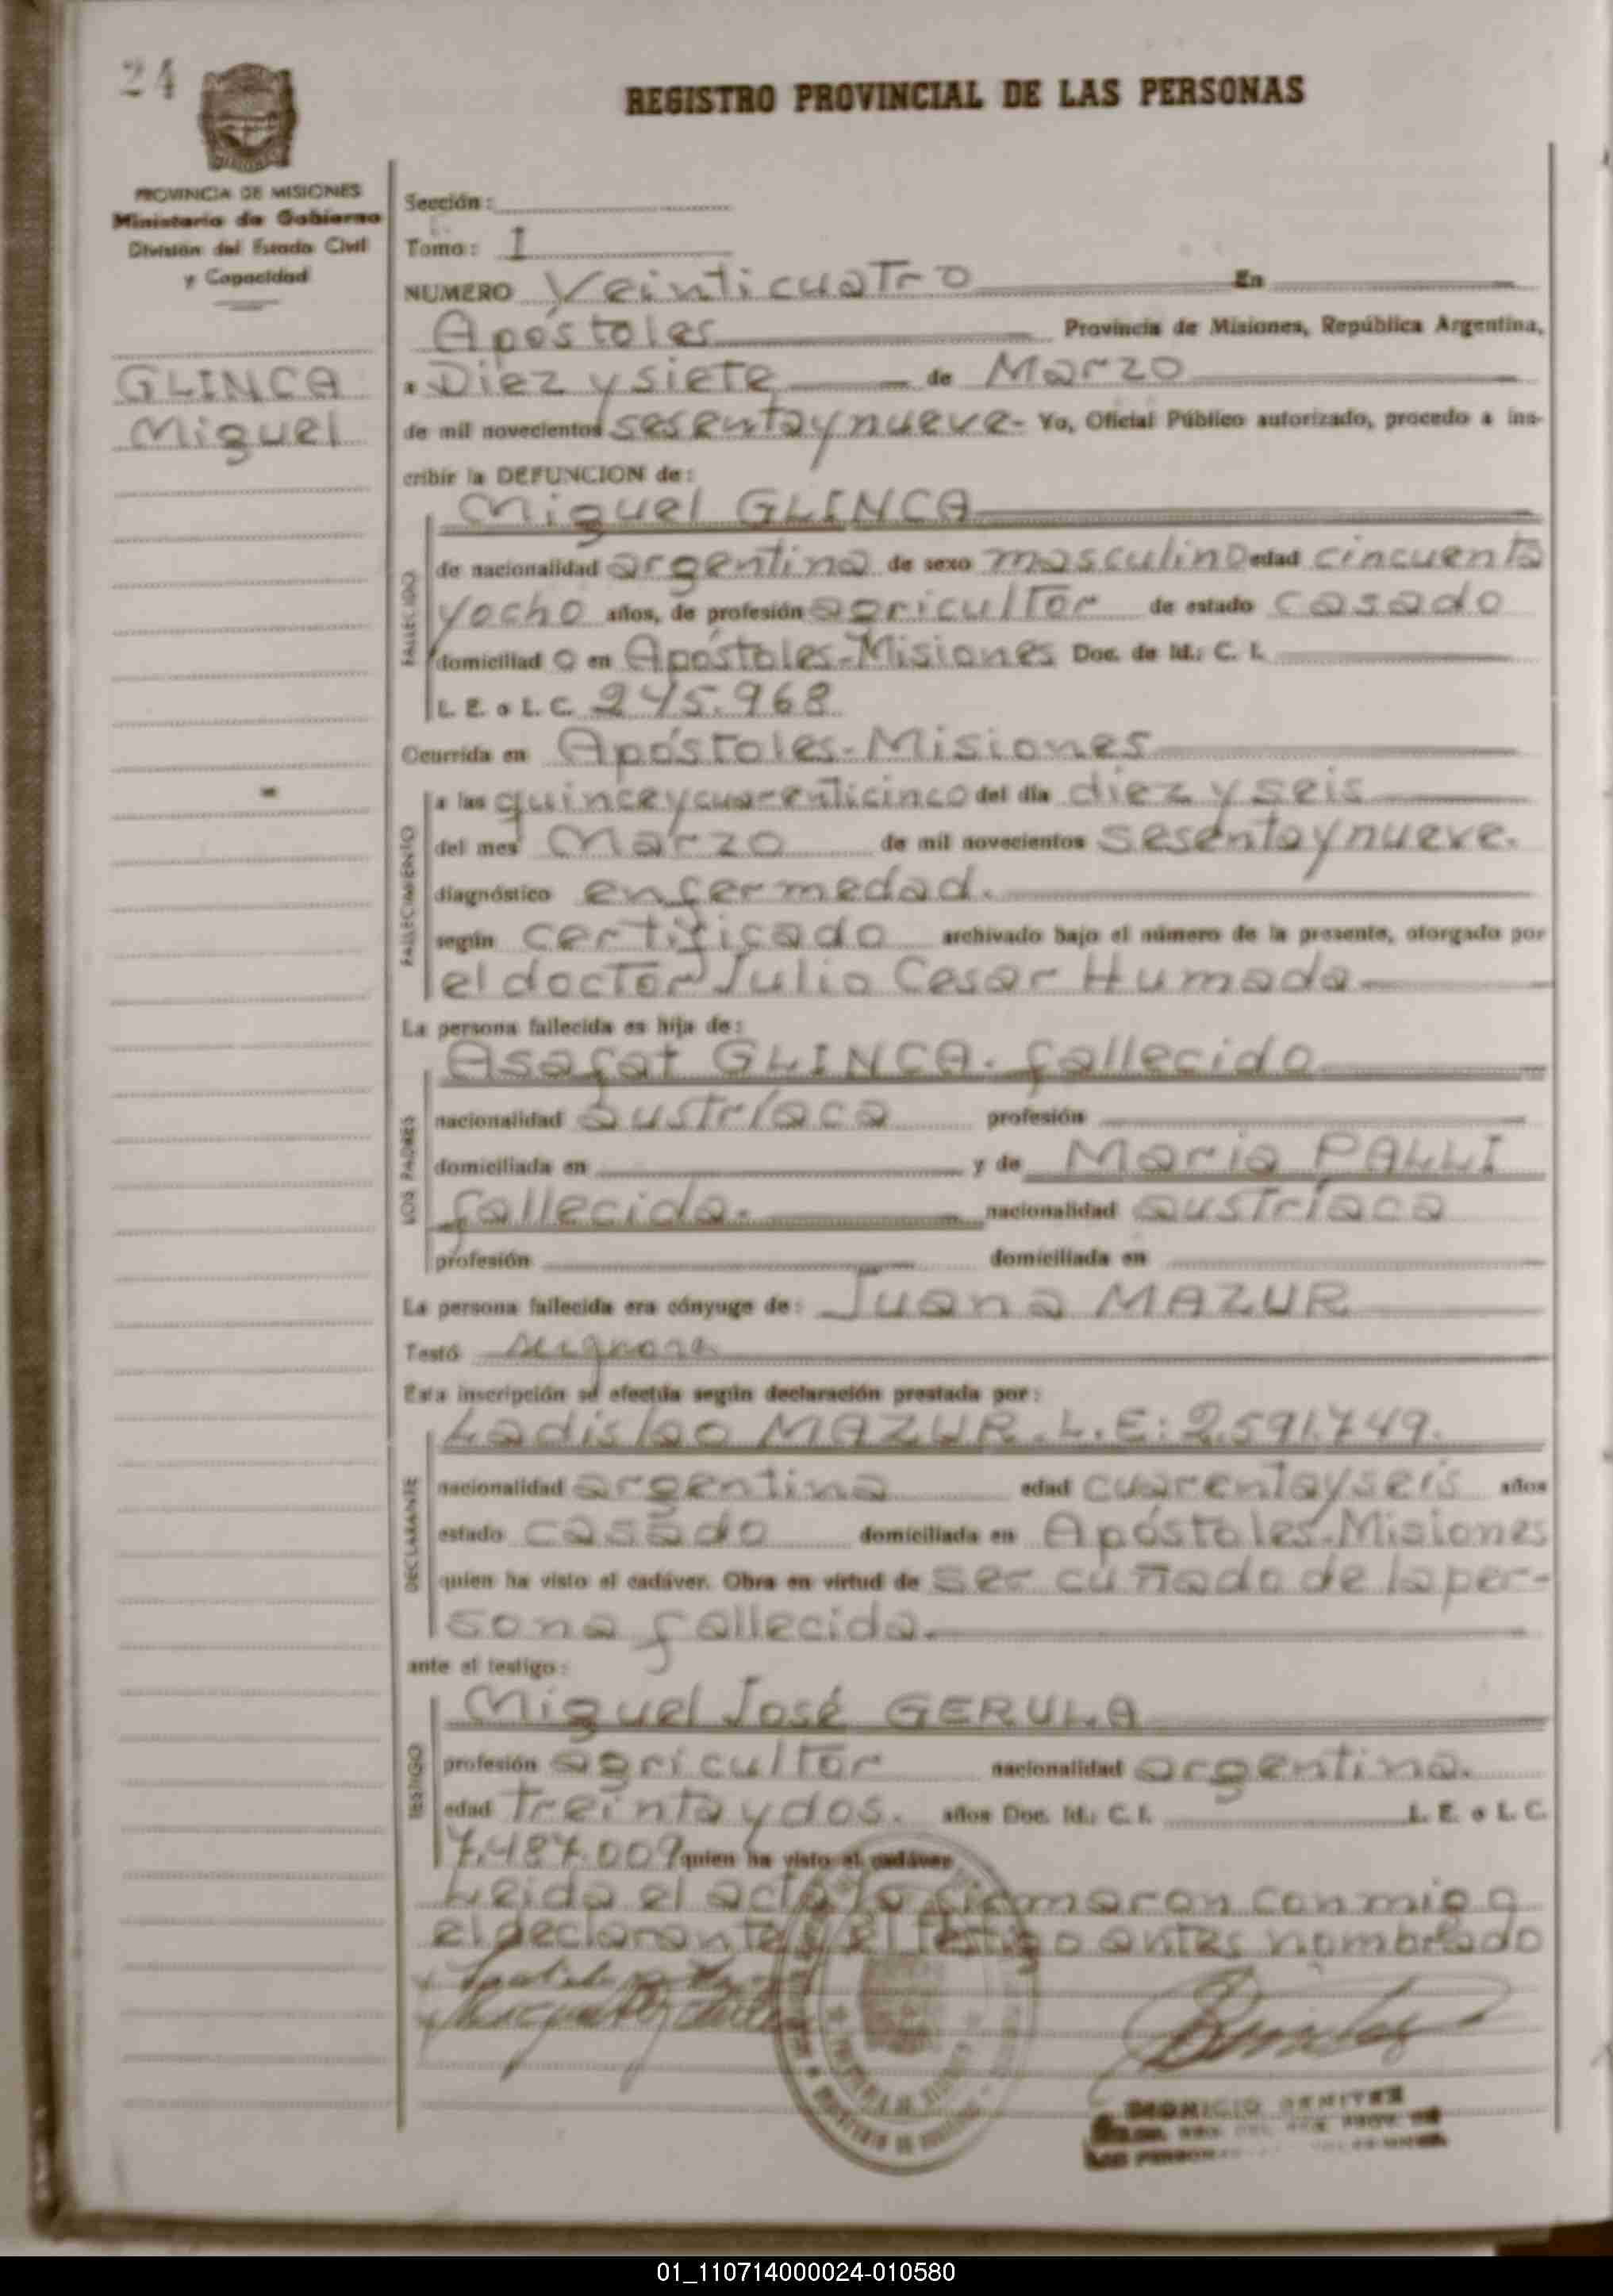 24
REGISTRO PROVINCIAL DE LAS PERSONAS
PROVINCIA DE MISIONES
Ministerio de Gobierno
División del Estado Civil
y Capacidad
GLINCA
Miguel
Sección:
Tomo: I
NUMERO Veinticuatro En
Apóstoles Provincia de Misiones, República Argentina,
a Diez y siete de Marzo
de mil novecientos sesenta y nueve- Yo, Oficial Público autorizado, procedo a ins-
cribir la DEFUNCION de:
Miguel GLINCA
FALLECIDO
de nacionalidad argentina de sexo masculino edad cincuenta
y ocho años, de profesión agricultor de estado casado
domiciliad o en Apóstoles-Misiones Doc. de Id.: C. I.
L. E. o L. C. 245.968
Ocurrida en Apóstoles-Misiones
FALLECIMIENTO
a las quince y cuarenticinco del día diez y seis
del mes Marzo de mil novecientos sesenta y nueve.
diagnóstico enfermedad.
según certificado archivado bajo el número de la presente, otorgado por
el doctor Julio Cesar Humada
La persona fallecida es hija de:
LOS PADRES
Asafat GLINCA. fallecido
nacionalidad austríaca profesión
domiciliada en y de Maria PALLI
fallecida. nacionalidad austríaca
profesión domiciliada en
La persona fallecida era cónyuge de: Juana MAZUR
Testó se ignora
Esta inscripción se efectúa según declaración prestada por:
DECLARANTE
Ladislao MAZUR. L.E: 2.591.749.
nacionalidad argentina edad cuarenta y seis años
estado casado domiciliada en Apóstoles-Misiones
quien ha visto el cadáver. Obra en virtud de ser cuñado de la per-
sona fallecida.
ante el testigo:
TESTIGO
Miguel José GERULA
profesión agricultor nacionalidad argentina.
edad treinta y dos. años Doc. Id.: C. I. L. E. o L. C.
7.487.009 quien ha visto el cadáver
Leida el acta la firmaron conmigo
el declarante y el testigo antes nombrado
DIONICIO BENITEZ
01_110714000024-010580